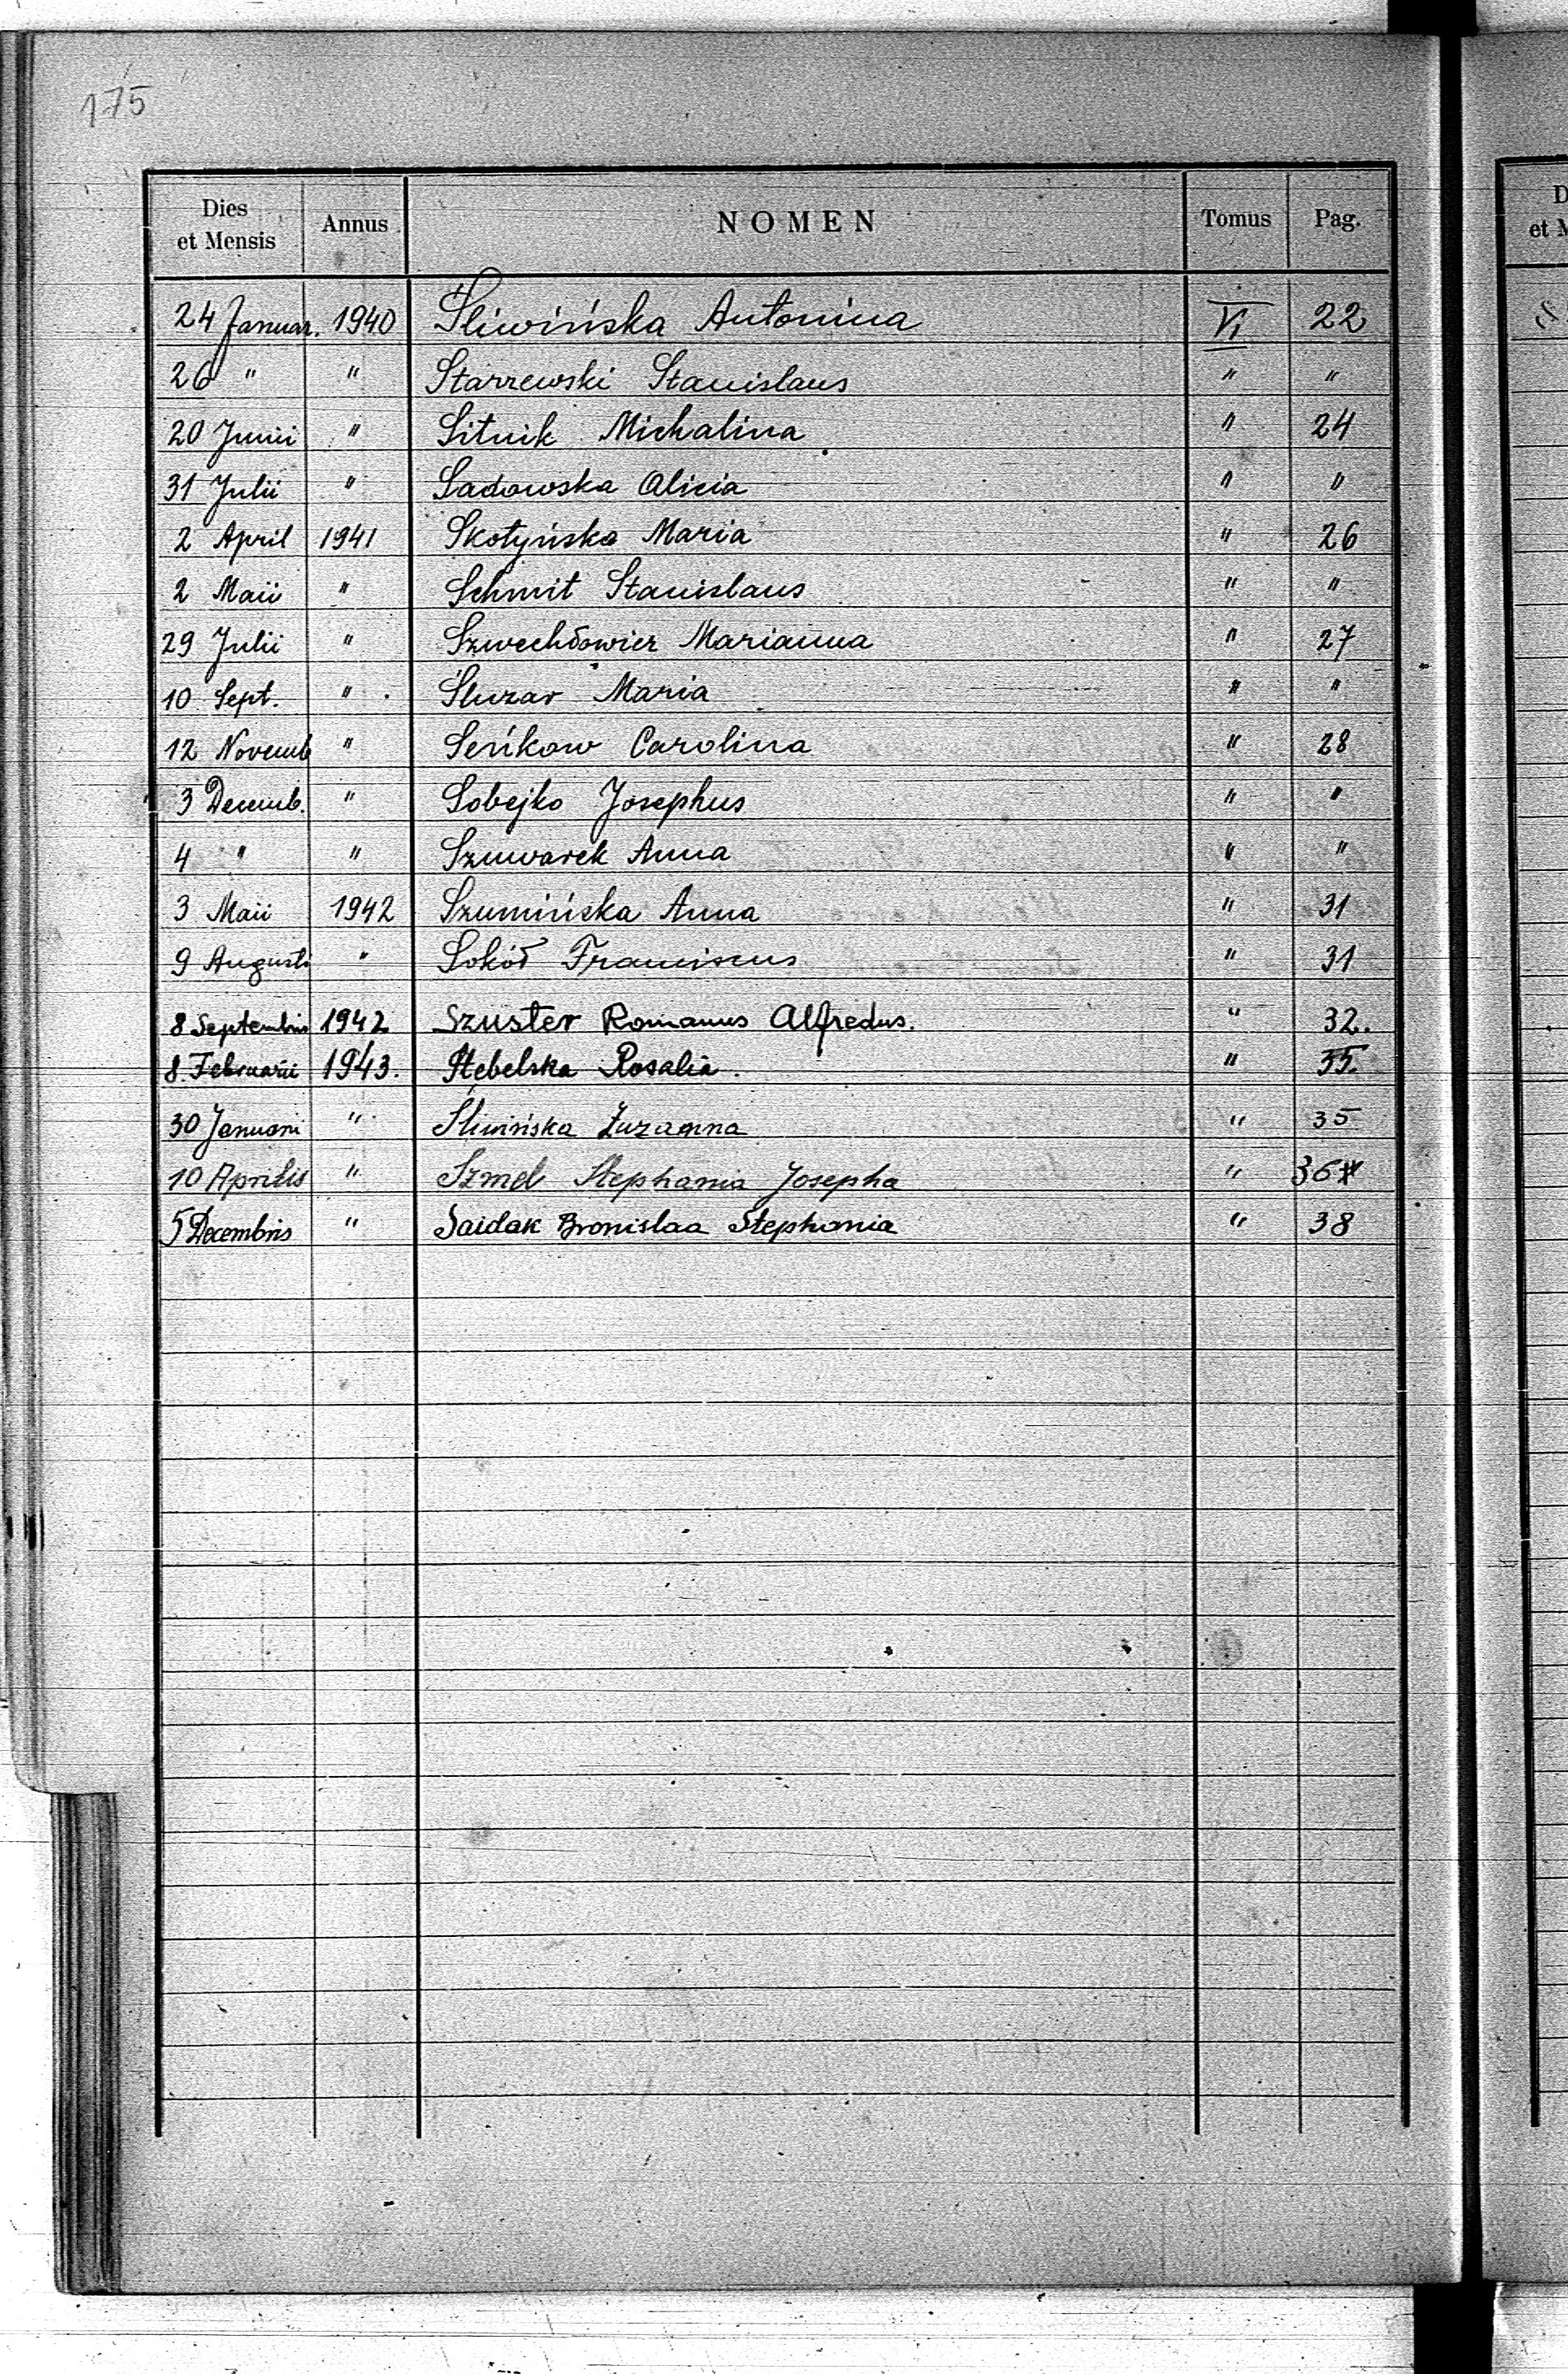 175
Dies et Mensis Annus NOMEN Tomus Pag.
24 Januar. 1940 Śliwińska Antonina VI 22
26 " " Starzewski Stanislaus " "
20 Junii " Sitnik Michalina " 24
31 Julii " Sadowska Alicia " "
2 April 1941 Skotyńska Maria " 26
2 Maii " Schmit Stanislaus " "
29 Julii " Szwechłowicz Marianna " 27
10 Sept. " Śluzar Maria " "
12 Novemb " Seńkow Carolina " 28
3 Decemb. " Sobejko Josephus " "
4 " " Szuwarek Anna " "
3 Maii 1942 Szumińska Anna " 31
9 Augusti " Sokół Franciscus " 31
8 Septembris 1942 Szuster Romanus Alfredus. " 32.
8. Februarii 1943. Stebelska Rosalia. " 35.
30 Januarii " Śliwińska Zuzanna " 35
10 Aprilis " Szmel Stephania Josepha " 36
5 Decembris " Saidak Bronislaa Stephania " 38
D
et M